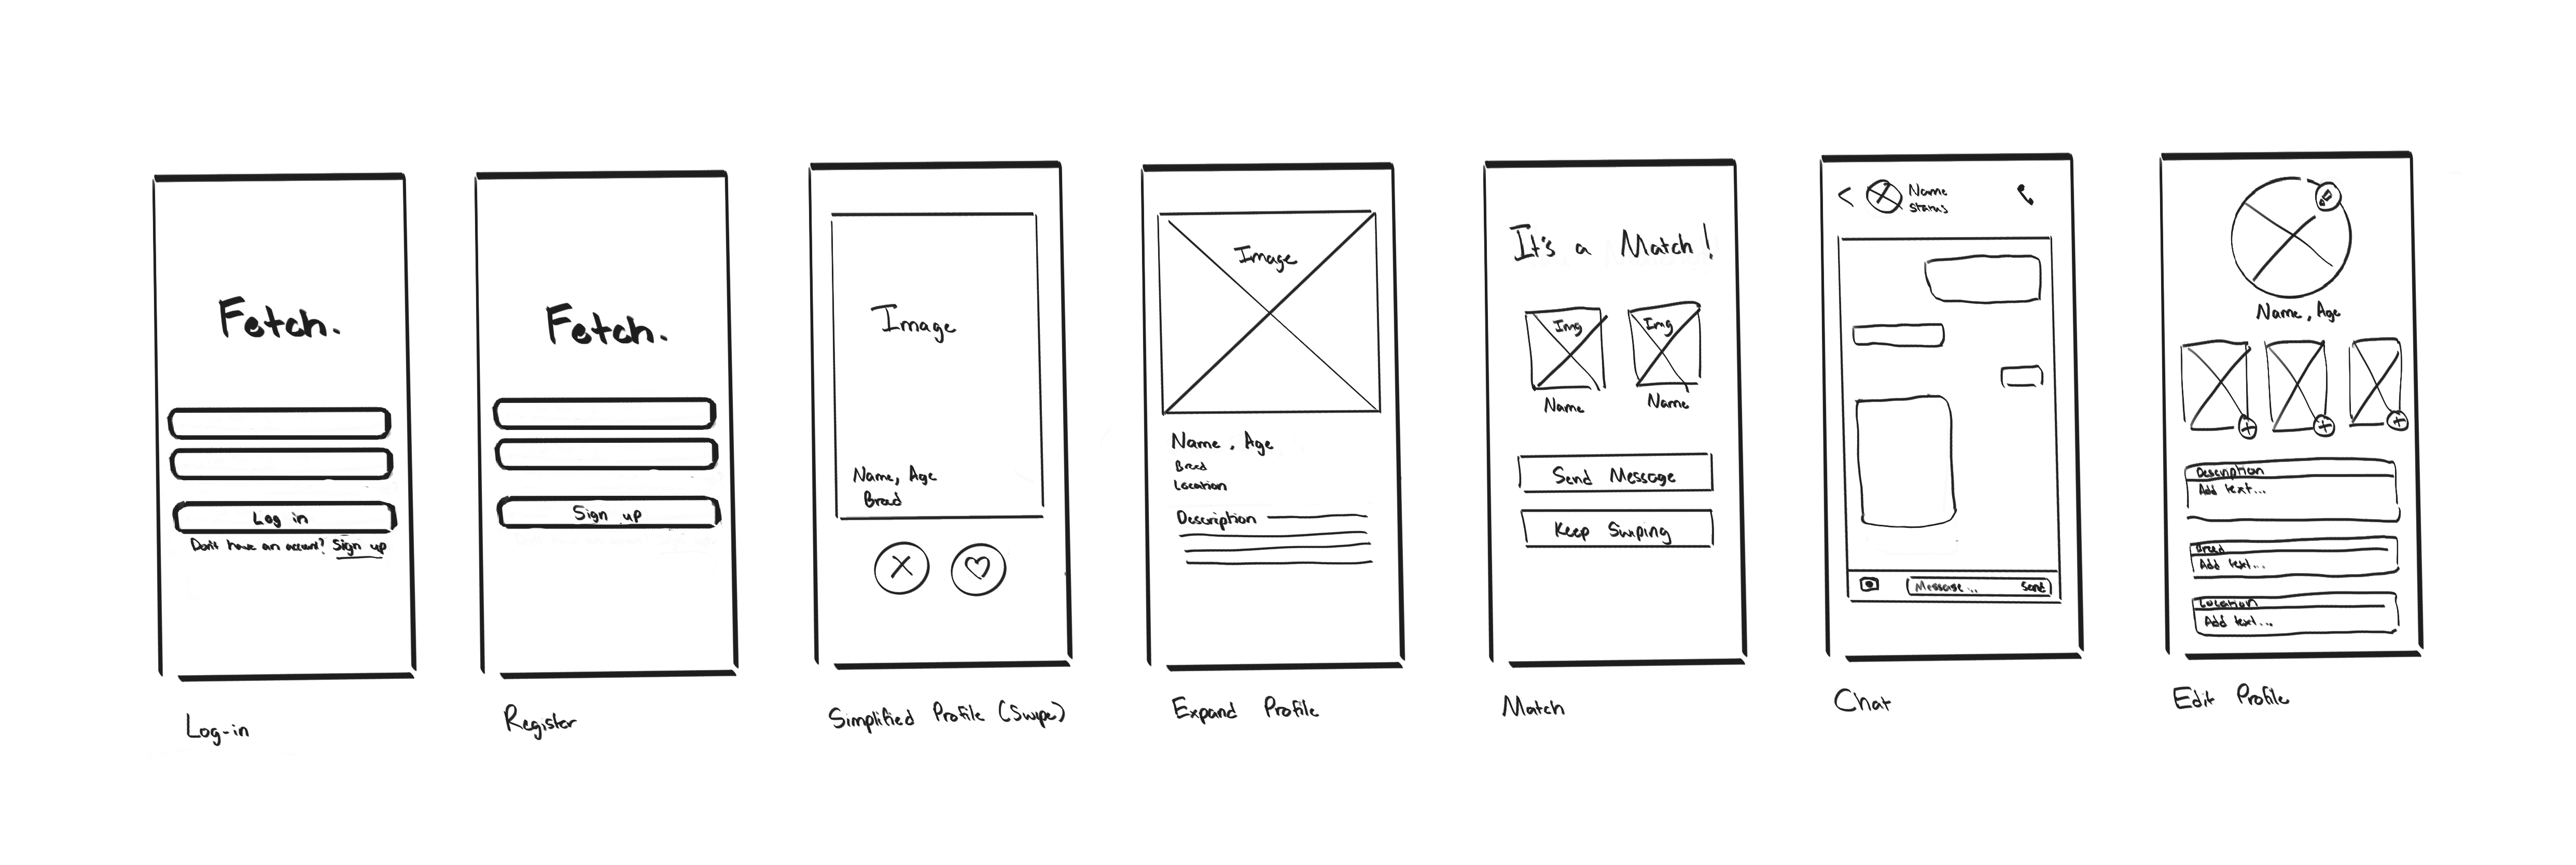 Fetch.
Log in
Don't have an account? Sign up
Log-in
Fetch.
Sign up
Register
Image
Name, Age
Breed
Simplified Profile (Swipe)
Image
Name, Age
Breed
Location
Description
Expand Profile
It's a Match!
Img Img
Name Name
Send Message
Keep Swiping
Match
Name
Status
Message... Send
Chat
Name, Age
Description
Add text...
Breed
Add text...
Location
Add text...
Edit Profile